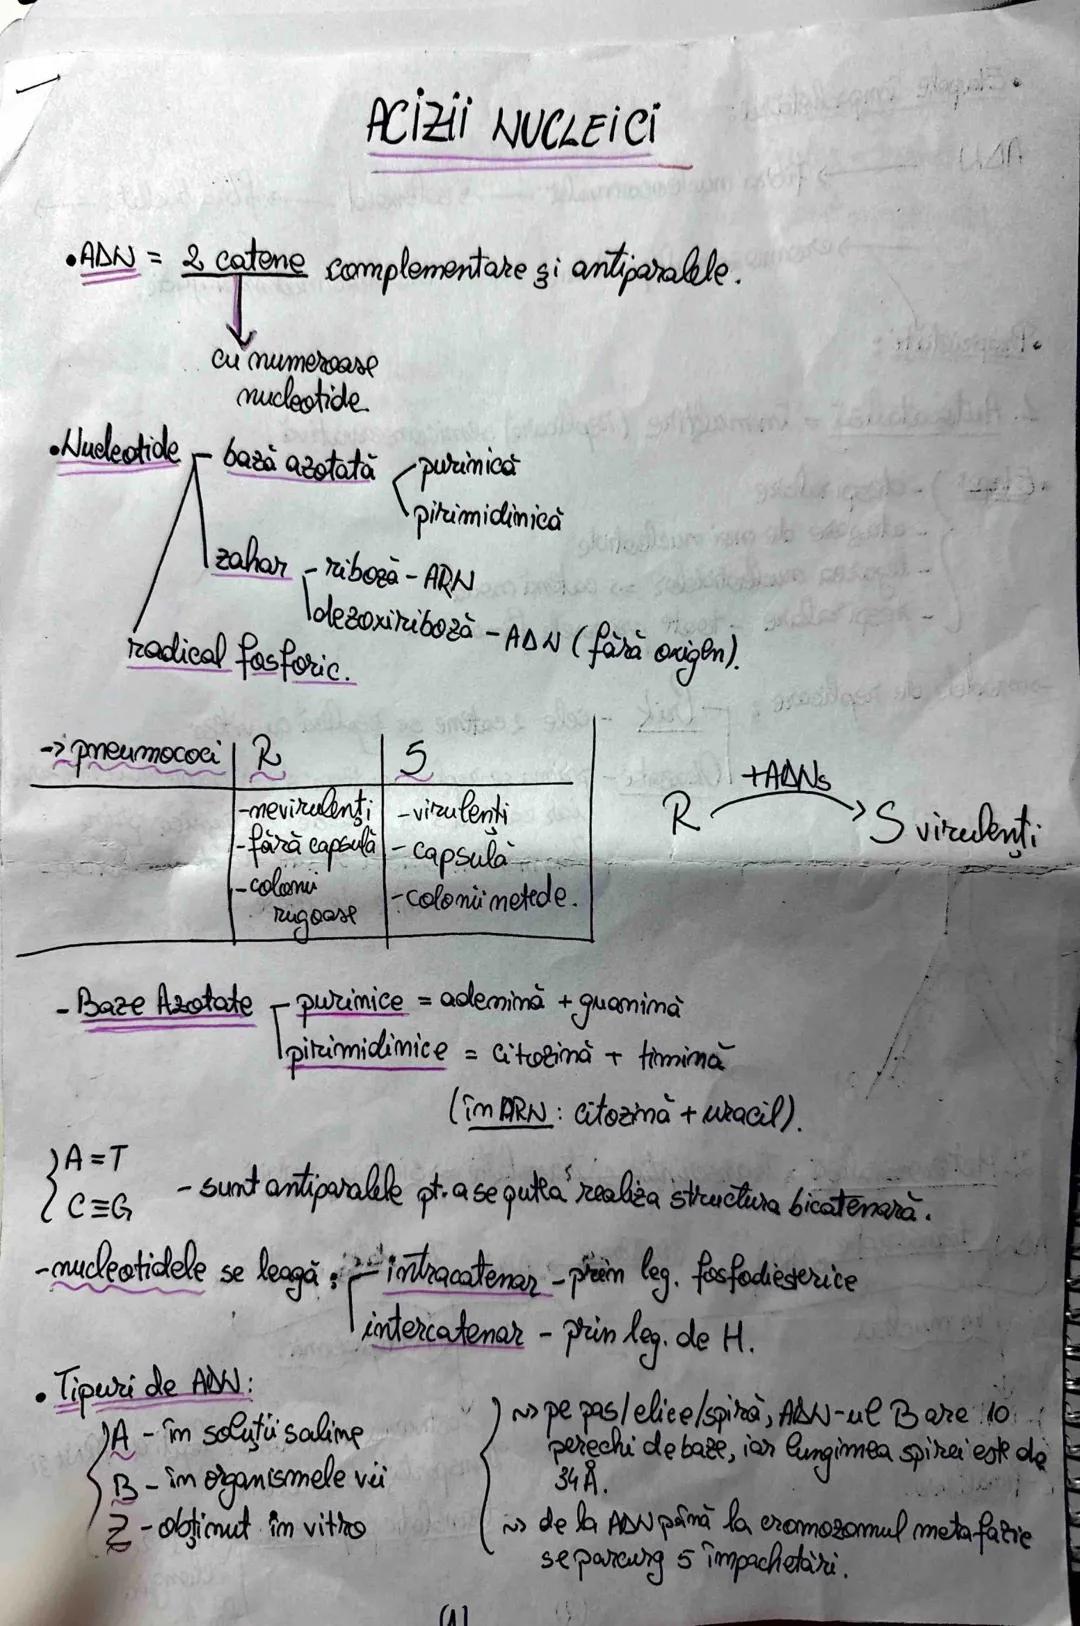 ACIZII NUCLEICI
•ADN = 2 catene complementare și antiparalele.
cu numeroase
nucleotide
•Nucleotide - bază azotată - purinică
pirimidinică
zahar - riboză - ARN
dezoxiriboză - ADN (fără oxigen).
radical fosforic.
-> pneumococi R S
-nevirulenți -virulenți
-fără capsulă -capsulă
-colonii -colonii netede.
rugoase
R +ADNs S virulenți
- Baze Azotate - purinice = adenină + guanină
pirimidinice = citozină + timină
(în ARN: citozină + uracil).
A=T
C≡G
- sunt antiparalele pt. a se putea realiza structura bicatenară.
-nucleotidele se leagă: - intracatenar - prin leg. fosfodiesterice
intercatenar - prin leg. de H.
• Tipuri de ADN:
A - în soluții saline
B - în organismele vii
Z - obținut în vitro
~> pe pas/elice/spiră, ADN-ul B are 10
perechi de baze, iar lungimea spirei este de
34 Å.
~> de la ADN până la cromozomul metafazic
se parcurg 5 împachetări.
(1)